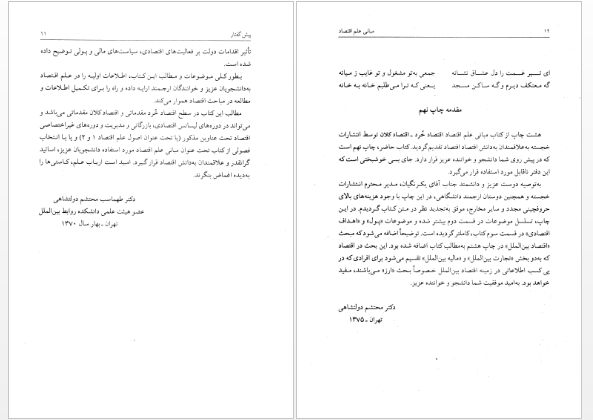 پیش گفتار ۱۱
تأثیر اقدامات دولت بر فعالیت‌های اقتصادی، سیاست‌های مالی و پولی توضیح داده
شده است.
بطور کلی موضوعات و مطالب این کتاب، اطلاعات اولیه را در علم اقتصاد
به‌دانشجویان عزیز و خوانندگان ارجمند ارایه داده و راه را برای تکمیل اطلاعات و
مطالعه در مباحث اقتصاد هموار می‌کند.
مطالب این کتاب در سطح اقتصاد خُرد مقدماتی و اقتصاد کلان مقدماتی می‌باشد و
می‌تواند در دوره‌های لیسانس اقتصادی، بازرگانی و مدیریت و دوره‌های غیراختصاصی
اقتصاد تحت عناوین مذکور (یا تحت عنوان اصول علم اقتصاد ۱ و ۲) و یا با انتخاب
فصولی از کتاب تحت عنوان مبانی علم اقتصاد مورد استفاده دانشجویان عزیز، اساتید
گرانقدر و علاقمندان به‌دانش اقتصاد قرار گیرد. امید است ارباب علم، کاستی‌ها را
به‌دیده اغماض بنگرند.
دکتر طهماسب محتشم دولتشاهی
عضو هیئت علمی دانشکده روابط بین‌الملل
تهران ـ بهار سال ۱۳۷۰
۱۲ مبانی علم اقتصاد
ای تیر غمت را دل عشاق نشانه جمعی به‌تو مشغول و تو غایب ز میانه
گه معتکف دیرم و گه ساکن مسجد یعنی که ترا می‌طلبم خانه به خانه
مقدمه چاپ نهم
هشت چاپ از کتاب مبانی علم اقتصاد اقتصاد خُرد ـ اقتصاد کلان توسط انتشارات
خجسته به‌علاقمندان به‌دانش اقتصاد اقتصاد تقدیم گردید. کتاب حاضر، چاپ نهم است
که در پیش روی شما دانشجو و خواننده عزیز قرار دارد. جای بسی خوشبختی است که
این دفتر ناقابل مورد استفاده قرار می‌گیرد.
به‌توصیه دوست عزیز و دانشمند جناب آقای بکر نگیان، مدیر محترم انتشارات
خجسته و همچنین دوستان ارجمند دانشگاهی، در این چاپ با وجود هزینه‌های بالای
حروفچینی مجدد و سایر مخارج، موفق به‌تجدید نظر در متن کتاب گردیدم. در این
چاپ، تسلسل موضوعات در قسمت دوم بیشتر شده و موضوعات «پول» و «اهداف
اقتصادی» در قسمت سوم کتاب، کاملتر گردیده است. توضیحاً اضافه می‌شود که مبحث
«اقتصاد بین‌الملل» در چاپ هشتم به‌مطالب کتاب اضافه شده بود. این بحث در اقتصاد
که به‌دو بخش «تجارت بین‌الملل» و «مالیه بین‌الملل» تقسیم می‌شود برای افرادی که در
پی کسب اطلاعاتی در زمینه اقتصاد بین‌الملل خصوصاً بحث «ارز» می‌باشند، مفید
خواهد بود. به‌امید موفقیت شما دانشجو و خواننده عزیز.
دکتر محتشم دولتشاهی
تهران ـ ۱۳۷۵